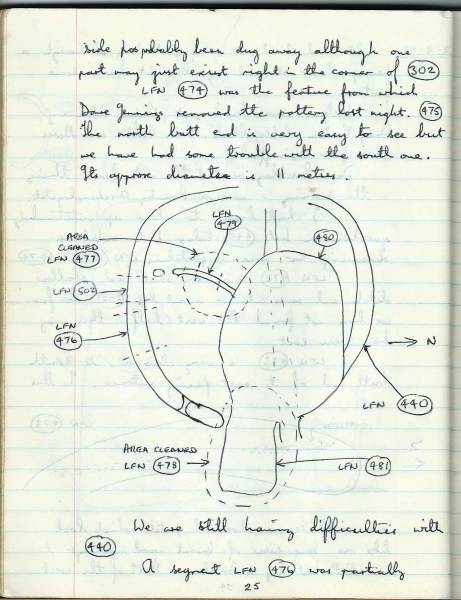 side probably been dug away although one
part may just exist right in the corner of 302
LFN 474 was the feature from which
Dave Jennings removed the pottery last night. 475
The north butt end is very easy to see but
we have had some trouble with the south one.
Its approx diameter is 11 metres.
LFN
479
AREA
CLEANED
LFN 477
480
LFN 502
LFN
476
N
LFN 440
AREA CLEANED
LFN 478
LFN 481
We are still having difficulties with
440
A segment LFN 476 was partially
25